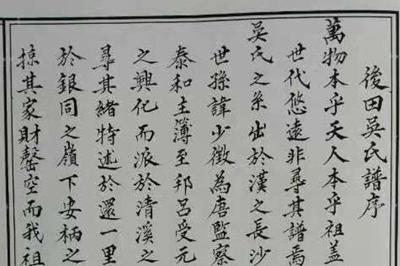 後田吳氏譜序
萬物本乎天人本乎祖蓋
世代悠遠非尋其譜焉
吳氏之系出於漢之長沙
世孫諱少微為唐監察
泰和主簿至邦呂受元
之興化而派於清溪之
尋其緒特述於還一里
於銀同之嶺下安柄之
掠其家財罄空而我祖